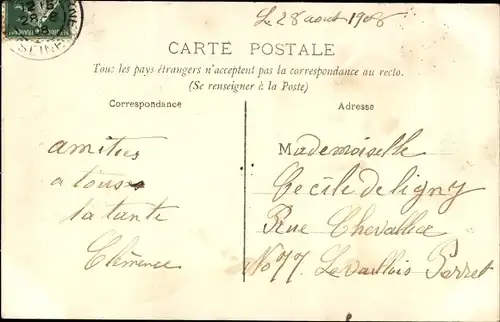 Le 28 aout 1908
CARTE POSTALE
Tous les pays étrangers n'acceptent pas la correspondance au recto.
(Se renseigner à la Poste)
Correspondance
amities
a tous
la tante
Clémence
Adresse
Mademoiselle
Cecile de ligny
Rue Chevallier
No 77 Levallois Perret
SEINE